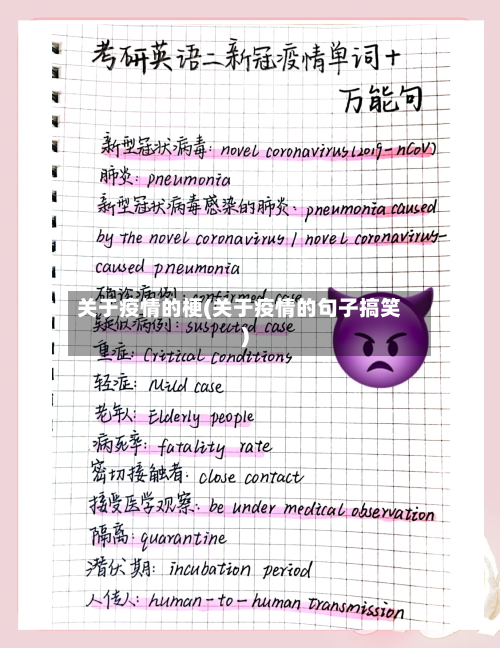 考研英语二新冠疫情单词+
万能句
新型冠状病毒: novel coronavirus(2019-nCoV)
肺炎: pneumonia
新型冠状病毒感染的肺炎: pneumonia caused
by the novel coronavirus / novel coronavirus-
caused pneumonia
确诊病例: confirmed case
关于疫情的梗(关于疫情的句子搞笑
)
疑似病例: suspected case
重症: Critical conditions
轻症: Mild case
老年人: Elderly people
病死率: fatality rate
密切接触者: close contact
接受医学观察: be under medical observation
隔离: quarantine
潜伏期: incubation period
人传人: human-to-human transmission